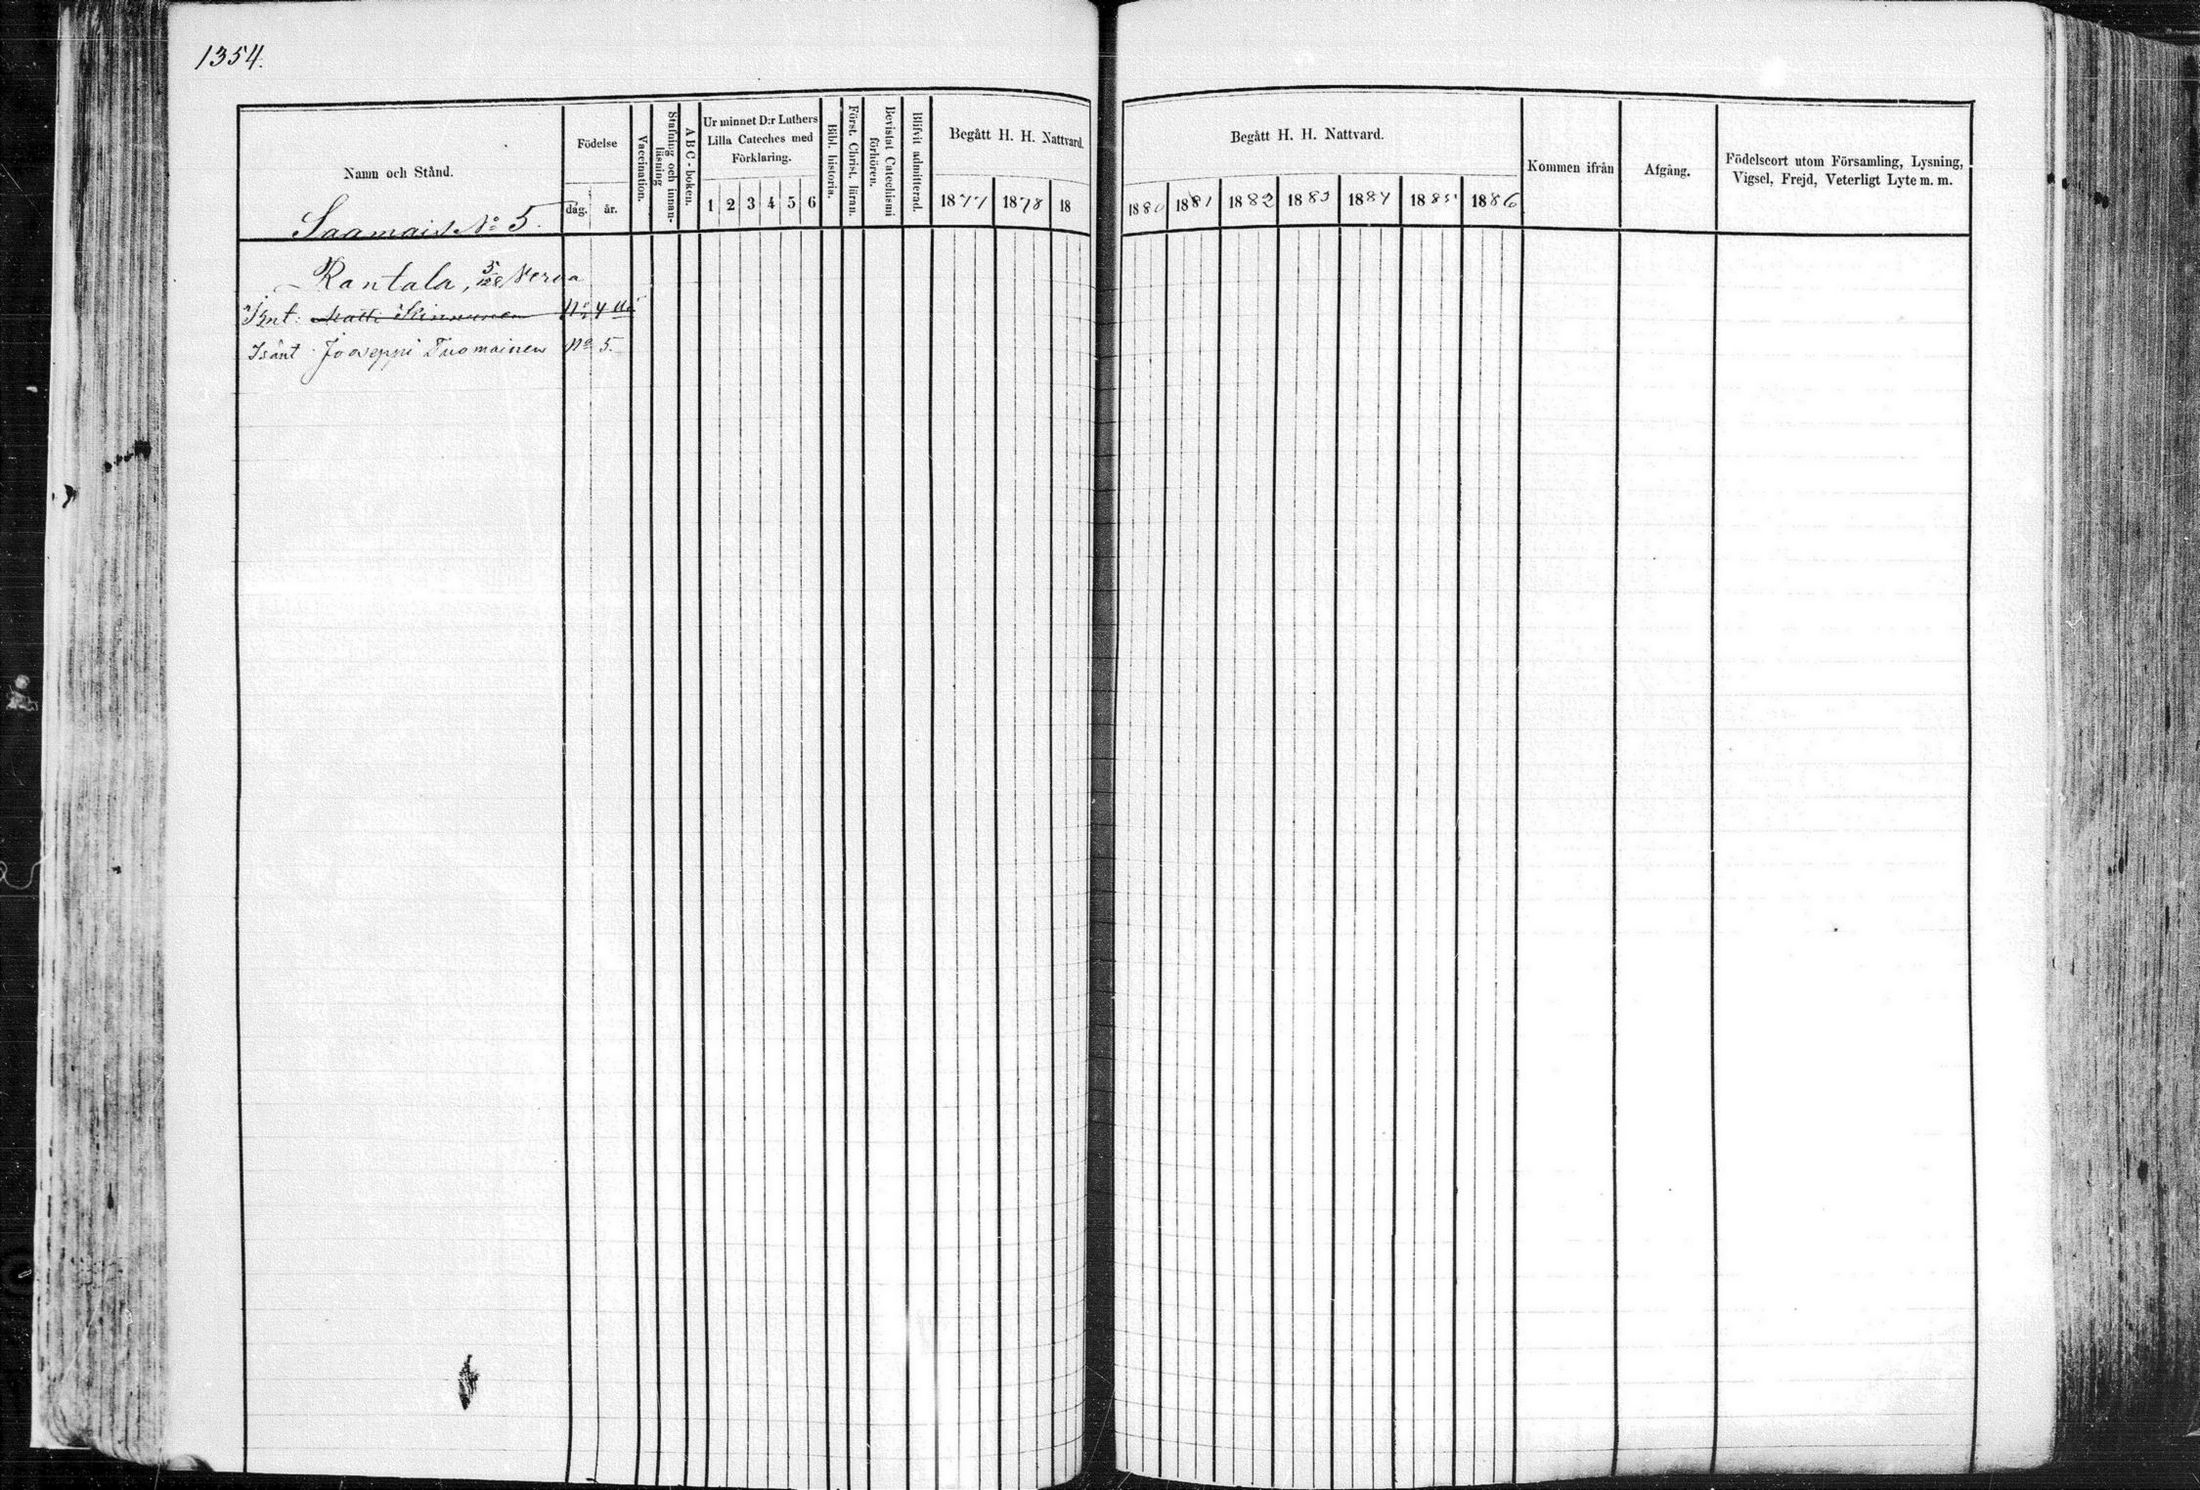 1354.
Namn och Stånd.
Födelse
dag. år.
Vaccination.
Stafning och innan-
läsning
ABC-boken.
Ur minnet D:r Luthers
Lilla Cateches med
Förklaring.
1 2 3 4 5 6
Bibl. historia.
Först. Christ. läran.
Bevistat Catechismi
förhören.
Blifvit admitterad.
Begått H. H. Nattvard.
1877 1878 18
Begått H. H. Nattvard.
1880 1881 1882 1883 1884 1885 1886
Kommen ifrån
Afgång.
Födelseort utom Församling, Lysning,
Vigsel, Frejd, Veterligt Lyte m. m.
No 5.
Rantala,
Matti Kinnunen No 4
Isänt Jooseppi Tuomainen No 5.